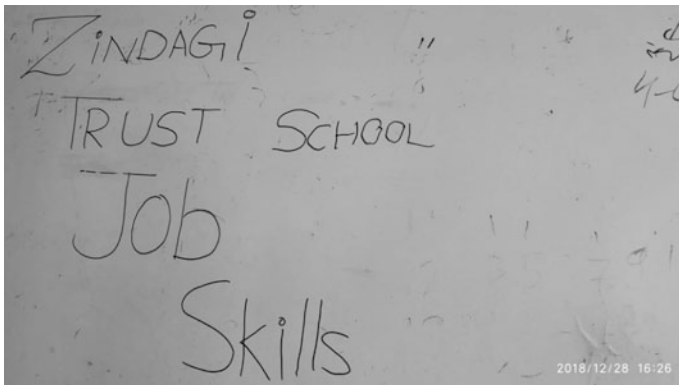 ZiNDAGi
TRUST SCHOOL
Job
Skills
2018/12/28 16:26